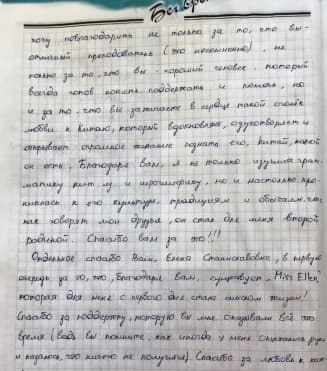 Без вре
хочу поблагодарить не только за то, что вы -
отличный преподаватель (это несомненно), не
только за то, что вы - хороший человек, который
всегда готов понять, поддержать и помочь, но
и за то, что вы зажигаете в сердце такой огонёк
любви к Китаю, который вдохновляет, одухотворяет и
открывает огромное желание познать его, Китай, какой
он есть. Благодаря вам, я не только изучила грам-
матику и иероглифику, но и настолько про-
никлась к его культуре, традициям и обычаям, что
как говорят мои друзья, он стал для меня второй
родиной. Спасибо вам за это!!!
Отдельное спасибо Вам, Елена Станиславовна, в первую
очередь за то, что, благодаря вам, существует "Miss Ellen",
которая для меня с первого дня стала смыслом жизни!
Спасибо за поддержку, которую вы мне оказывали всё это
время (ведь вы помните, как иногда у меня опускались руки
и казалось, что ничего не получится). Спасибо за любовь к